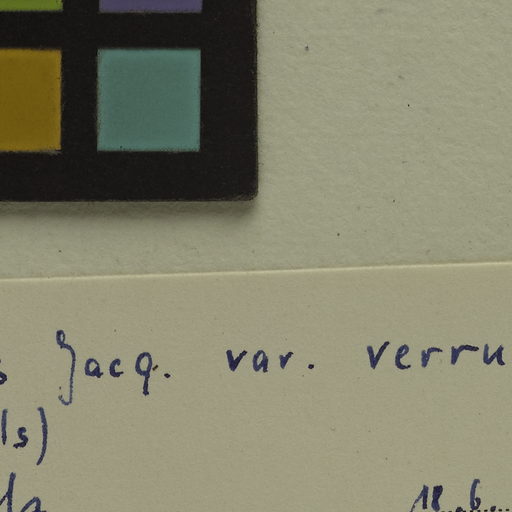 s Jacq. var. verru
ls)
la
18. 6.